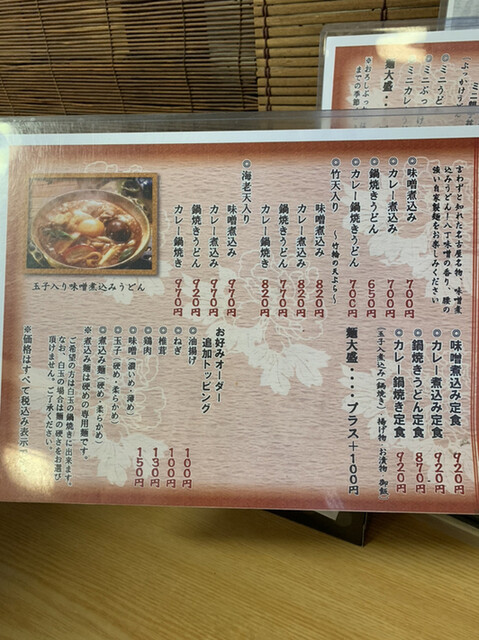 言わずと知れた名古屋名物、味噌煮
込みうどん！八丁味噌の香り、腰の
強い自家製麺をお楽しみください
◎味噌煮込み 700円
◎カレー煮込み 700円
◎鍋焼きうどん 650円
◎カレー鍋焼うどん 700円
◎竹天入り ～竹輪の天ぷら～
味噌煮込み 820円
カレー煮込み 820円
鍋焼きうどん 770円
カレー鍋焼き 820円
◎海老天入り
味噌煮込み 970円
カレー煮込み 970円
鍋焼きうどん 920円
カレー鍋焼き 970円
玉子入り味噌煮込みうどん
◎味噌煮込み定食 920円
◎カレー煮込み定食 920円
◎鍋焼きうどん定食 870円
◎カレー鍋焼き定食 920円
(玉子入煮込み(鍋焼き) 揚げ物 お漬物 御飯)
麺大盛・・・・プラス+100円
お好みオーダー
追加トッピング
・油揚げ 100円
・ねぎ 100円
・椎茸 130円
・鶏肉 150円
・味噌(濃いめ・薄め)
・玉子(硬め・柔らかめ)
・煮込み麺(硬め・柔らかめ)
※煮込み麺は硬めの専用麺です。
ご希望の方は白玉の鍋焼きに出来ます。
なお、白玉の場合は麺の硬さをお選び
頂けません。ご了承ください。
※価格はすべて税込み表示
ミニうど
ミニぶっ
ミニカレ
麺大盛・・・
※おろしぶっ
までの季節